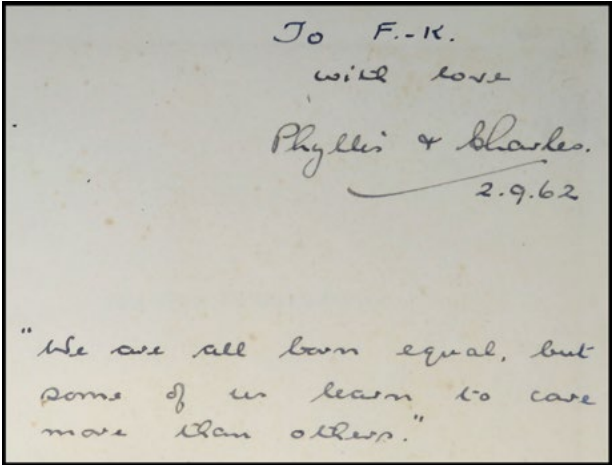 To F.-K.
with love
Phyllis & Charles.
2.9.62
"We are all born equal, but
some of us learn to care
more than others."